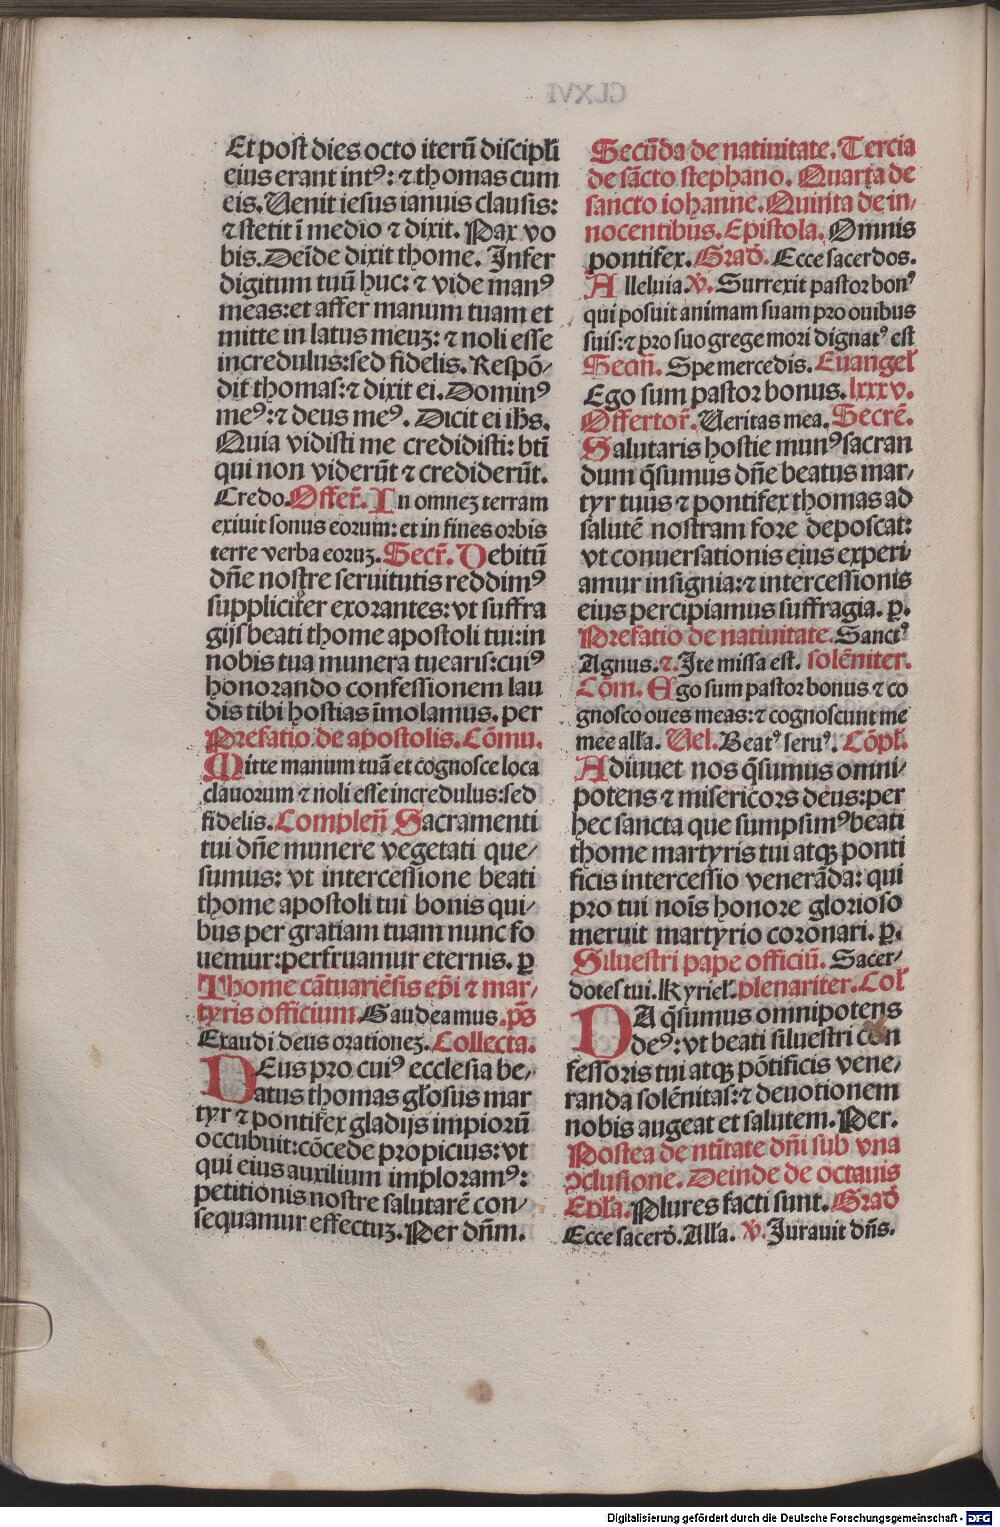 Et post dies octo iterū discipłi
eius erant intꝰ: ⁊ thomas cum
eis. Uenit iesus ianuis clausis:
⁊ stetit ī medio ⁊ dixit. Pax vo
bis. Deīde dixit thome. Infer
digitum tuū huc: ⁊ vide manꝰ
meas: et affer manum tuam et
mitte in latus meuꝫ: ⁊ noli esse
incredulus: sed fidelis. Respō/
dit thomas: ⁊ dixit ei. Dominꝰ
meꝰ: ⁊ deus meꝰ. Dicit ei ih̄s.
Quia vidisti me credidisti: btī
qui non viderūt ⁊ crediderūt.
Credo. Offer̄. In omneꝫ terram
exiuit sonus eorum: et in fines orbis
terre verba eoruꝫ. Secr̄. Debitū
dn̄e nostre seruitutis reddimꝰ
suppliciter exorantes: vt suffra
gijs beati thome apostoli tui: in
nobis tua munera tuearis: cuiꝰ
honorando confessionem lau
dis tibi hostias īmolamus. per
Prefatio de apostolis. Cōmu.
Mitte manum tuā et cognosce loca
clauorum ⁊ noli esse incredulus: sed
fidelis. Complen̄ Sacramenti
tui dn̄e munere vegetati que/
sumus: vt intercessione beati
thome apostoli tui bonis qui/
bus per gratiam tuam nunc fo
uemur: perfruamur eternis. ꝑ
Thome cātuariēsis ep̄i ⁊ mar/
tyris officium. Gaudeamus. p̄s
Exaudi deus orationeꝫ. Collecta.
DEus pro cuiꝰ ecclesia be/
atus thomas gło̵sus mar
tyr ⁊ pontifex gladijs impiorū
occubuit: cōcede propicius: vt
qui eius auxilium imploramꝰ:
petitionis nostre salutarē con/
sequamur effectuꝫ. Per dn̄m.
Secūda de natiuitate. Tercia
de sācto stephano. Quarta de
sancto iohanne. Quinta de in/
nocentibus. Epistola. Omnis
pontifex. Grad̄. Ecce sacerdos.
Alleluia. ℣. Surrexit pastor bonꝰ
qui posuit animam suam pro ouibus
suis: ⁊ pro suo grege mori dignatꝰ est
Secūn. Spe mercedis. Euangeł
Ego sum pastor bonus. lxxxv.
Offertor̄. Ueritas mea. Secrē.
Salutaris hostie munꝰ sacran
dum q̄sumus dn̄e beatus mar/
tyr tuus ⁊ pontifex thomas ad
salutē nostram fore deposcat:
vt conuersationis eius experi/
amur insignia: ⁊ intercessionis
eius percipiamus suffragia. ꝑ.
Prefatio de natiuitate. Sanctꝰ
Agnus. ⁊. Ite missa est. solēniter.
Cōm. Ego sum pastor bonus ⁊ co
gnosco oues meas: ⁊ cognoscunt me
mee ałła. Uel. Beatꝰ seruꝰ. Cōpł.
Adiuuet nos q̄sumus omni/
potens ⁊ misericors deus: per
hec sancta que sumpsimꝰ beati
thome martyris tui atqꝫ ponti
ficis intercessio venerāda: qui
pro tui noīs honore glorioso
meruit martyrio coronari. ꝑ.
Siluestri pape officiū. Sacer/
dotes tui. Kyrieł. plenariter. Coł
DA q̄sumus omnipotens
deꝰ: vt beati siluestri con
fessoris tui atqꝫ pōtificis vene/
randa solēnitas: ⁊ deuotionem
nobis augeat et salutem. Per.
Postea de ntīitate dn̄i sub vna
ↄclusione. Deinde de octauis
Epła. Plures facti sunt. Grad̄
Ecce sacerd̄. Ałła. ℣. Jurauit dn̄s.
Digitalisierung gefördert durch die Deutsche Forschungsgemeinschaft - DFG